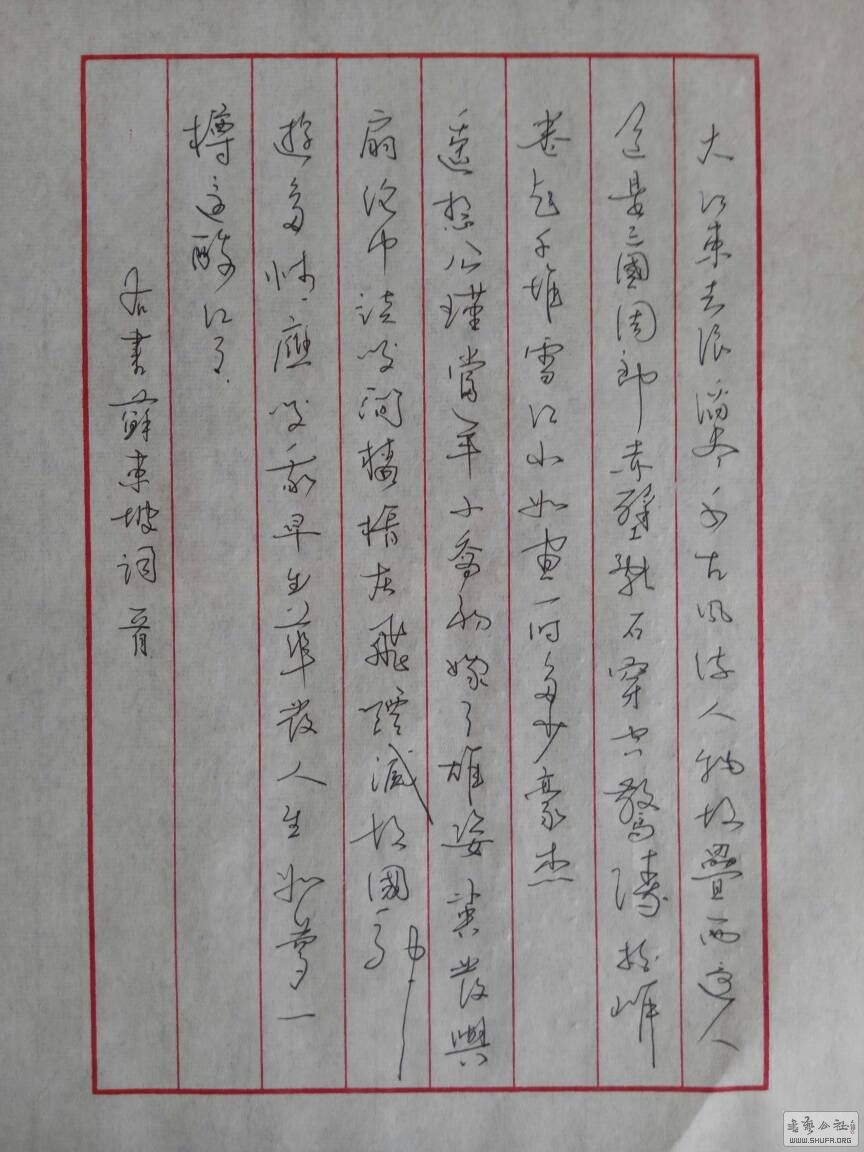 大江東去浪淘盡千古風流人物故壘西邊人
道是三國周郎赤壁亂石穿空驚濤拍岸
卷起千堆雪江山如畫一時多少豪杰
遥想公瑾當年小喬初嫁了雄姿英發與
扇綸巾談笑間檣櫓灰飛煙滅故國神
遊多情應笑我早生華發人生如夢一
樽還酹江月
右書蘇東坡詞一首
書藝公社
WWW.SHUFA.ORG